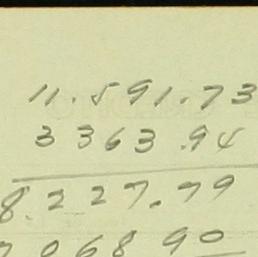 11.591.73
3363.94
8.227.79
068 90